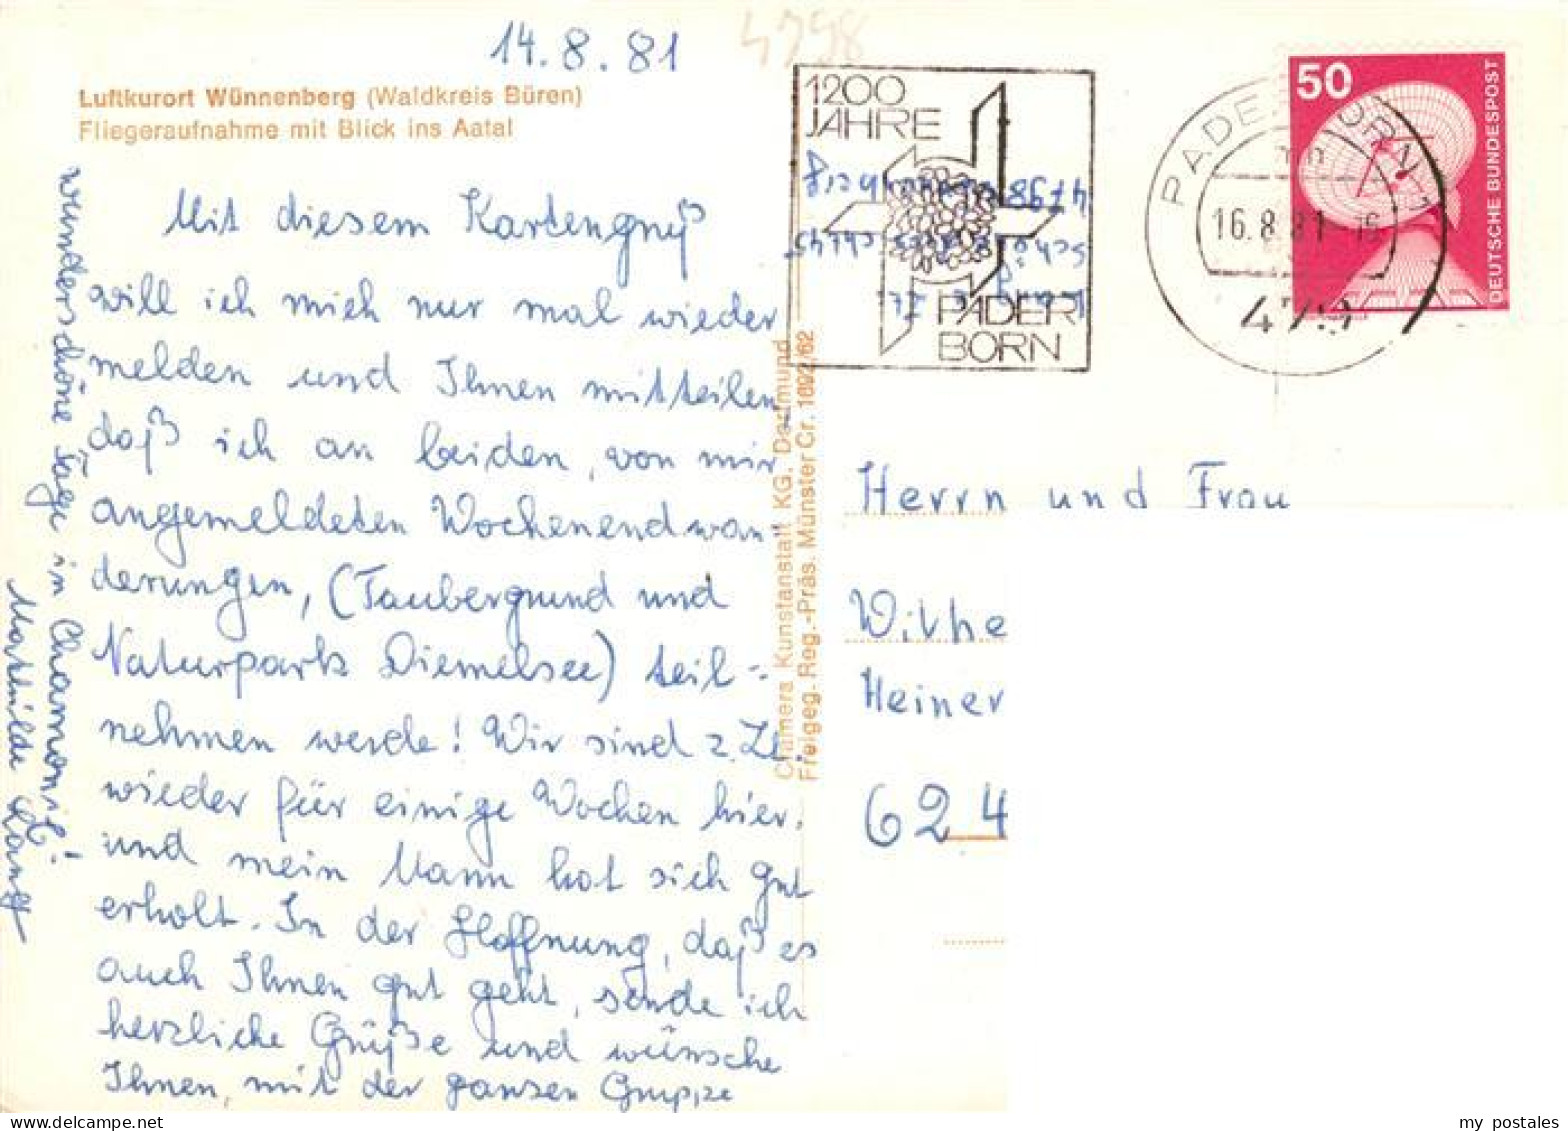 14.8.81
4798
Luftkurort Wünnenberg (Waldkreis Büren)
Fliegeraufnahme mit Blick ins Aatal
Mit diesem Kartengruß
will ich mich nur mal wieder
melden und Ihnen mitteilen,
daß ich an beiden, von mir
angemeldeten Wochenendwan
derungen, (Taubergrund und
Naturpark Diemelsee) teil-
nehmen werde! Wir sind z.Zt.
wieder für einige Wochen hier,
und mein Mann hat sich gut
erholt. In der Hoffnung, daß es
auch Ihnen gut geht, sende ich
herzliche Grüße und wünsche
Ihnen, mit der ganzen Gruppe
wunderschöne Tage in Chamonix!
Mathilde Lang
Cramers Kunstanstalt KG, Dortmund
Freigeg. Reg.-Präs. Münster Cr. 1692/62
1200
JAHRE
PADER
BORN
4798
PADERBORN 1
16.8.81-15
479
50
DEUTSCHE BUNDESPOST
Herrn und Frau
Wilhe
Heiner
624
my postales